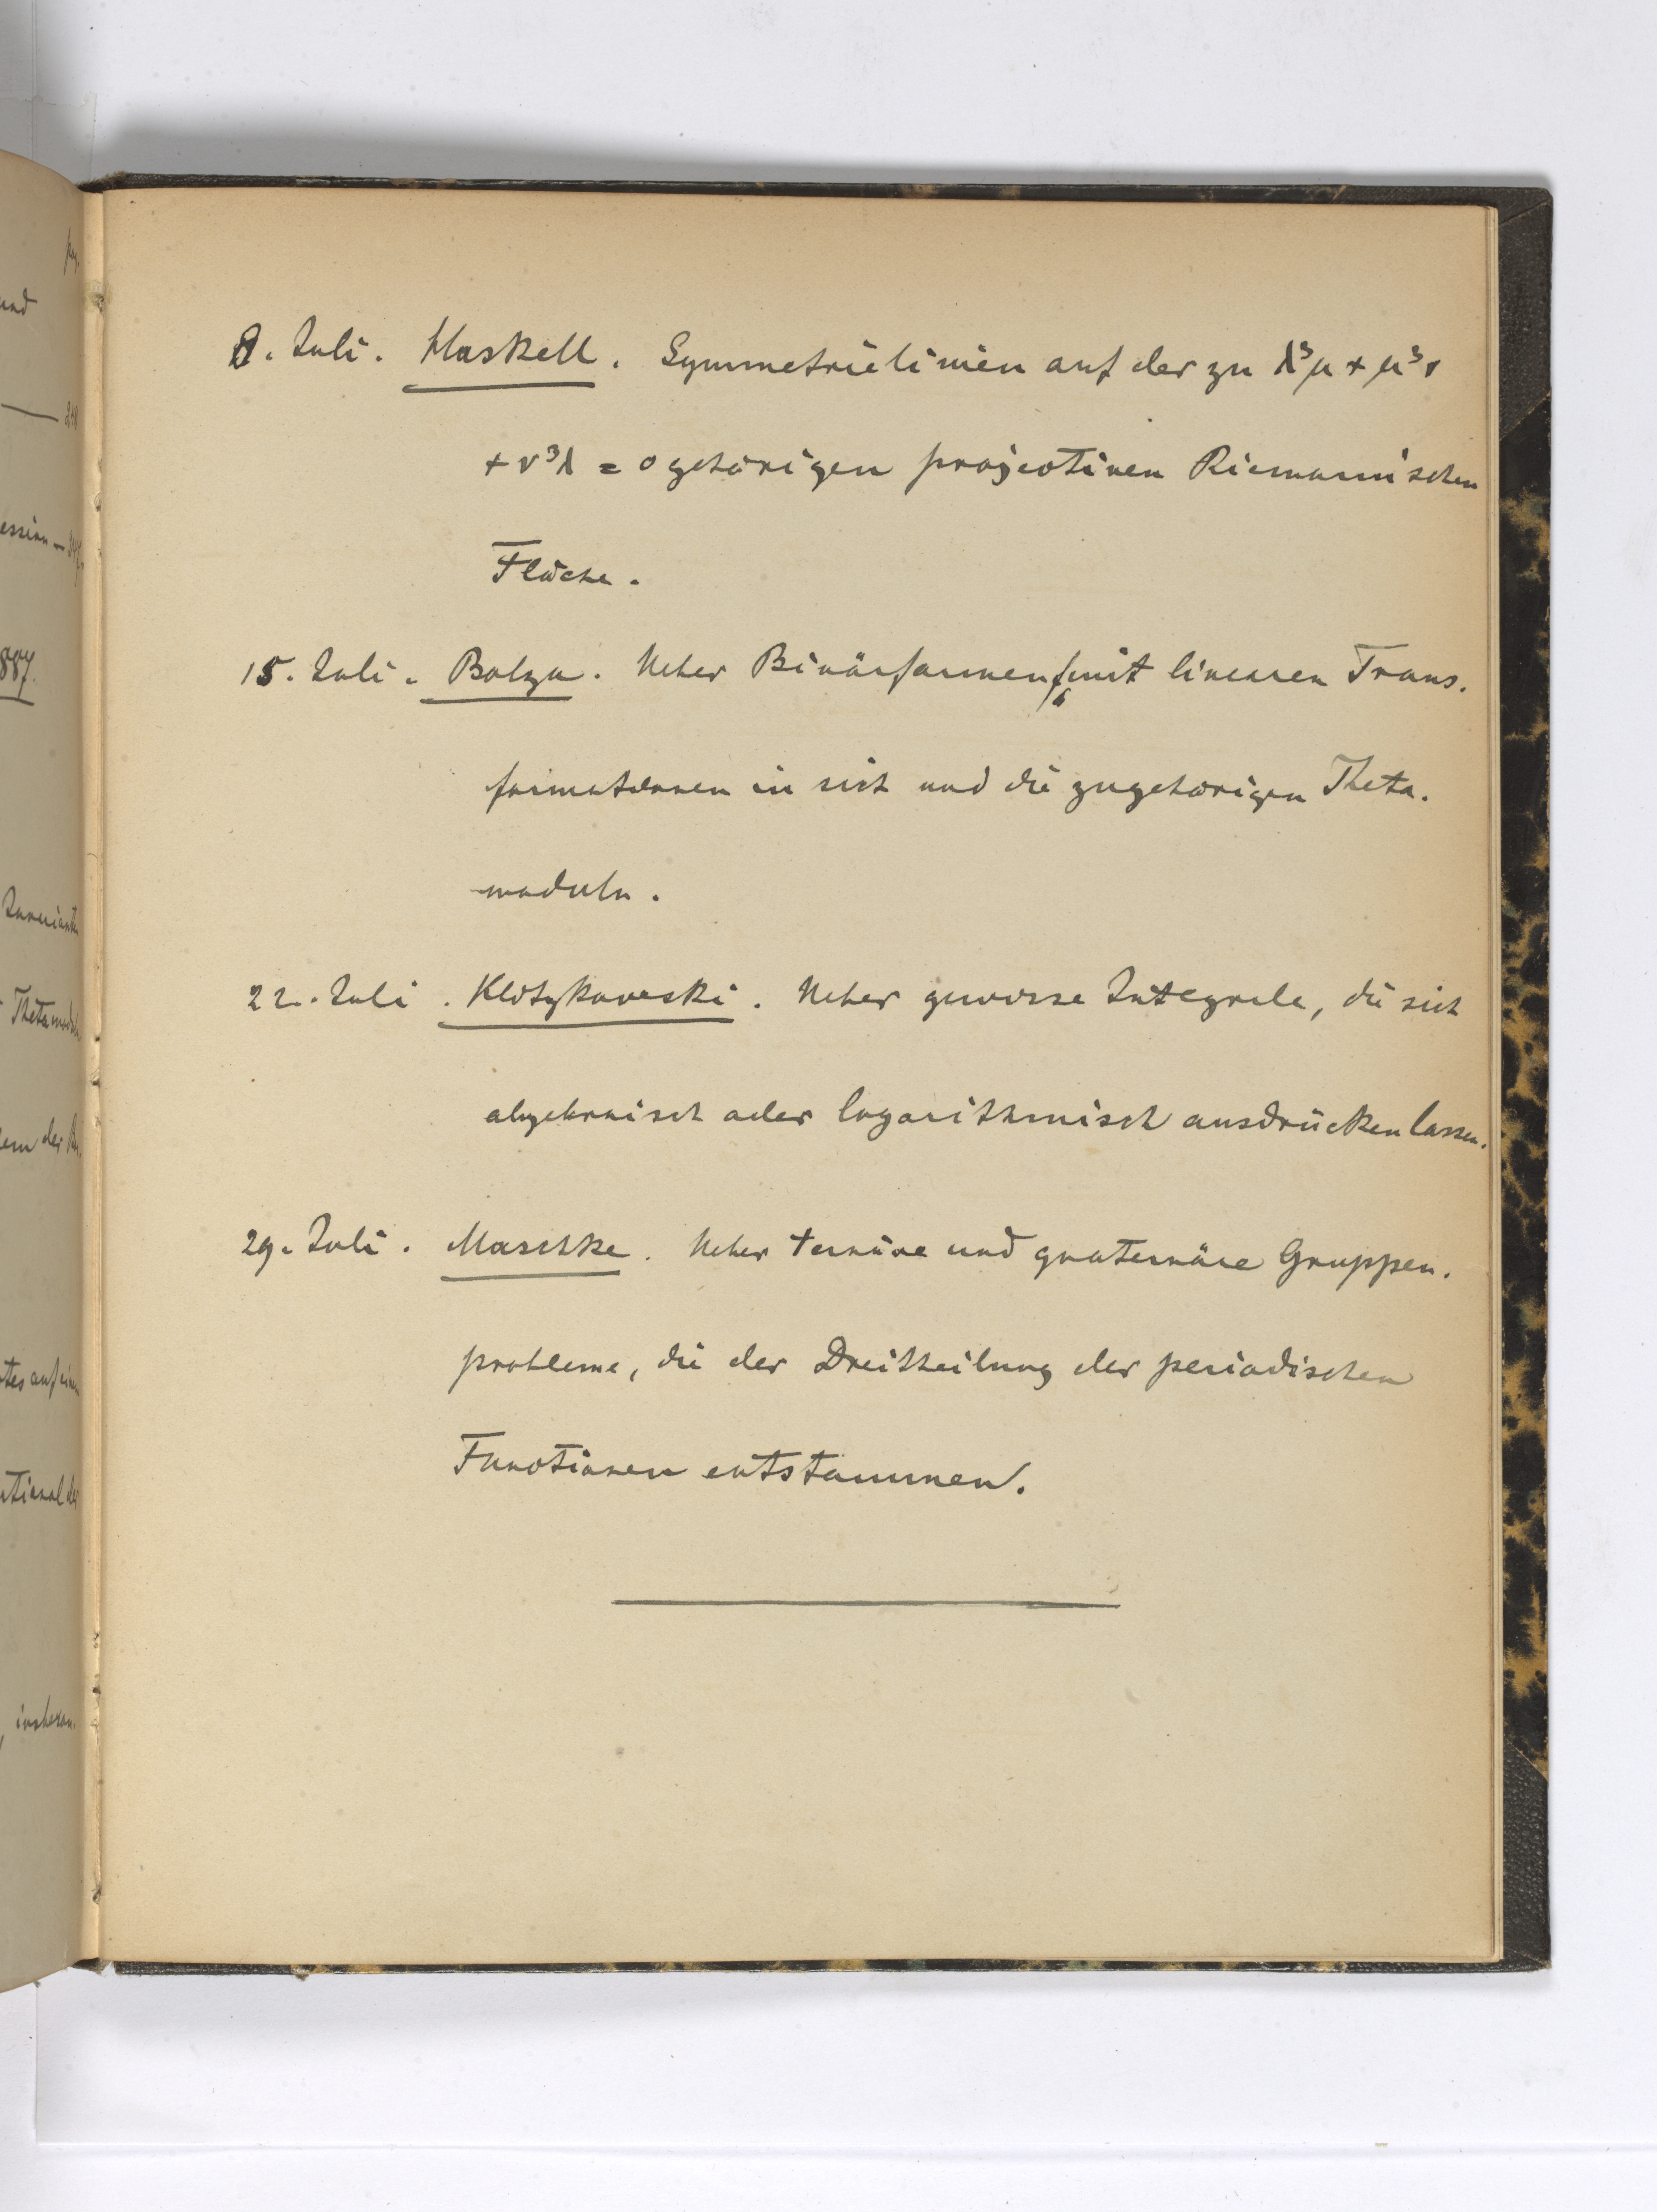 8. Juli. Haskell. Symmetrielinien auf der zu λ³μ + μ³ν
+ ν³λ = 0 gehörigen projectiven Riemannischen
Fläche.
15. Juli. Bolza. Ueber Binärformen f₆ mit linearen Trans-
formationen in sich und die zugehörigen Theta-
moduln.
22. Juli. Ueber gewisse Integrale, die sich
algebraisch oder logarithmisch ausdrücken lassen.
29. Juli. Maschke. Ueber ternäre und quaternäre Gruppen-
probleme, die der Dreitheilung der periodischen
Functionen entstammen.
und
887.
Thetamoduln